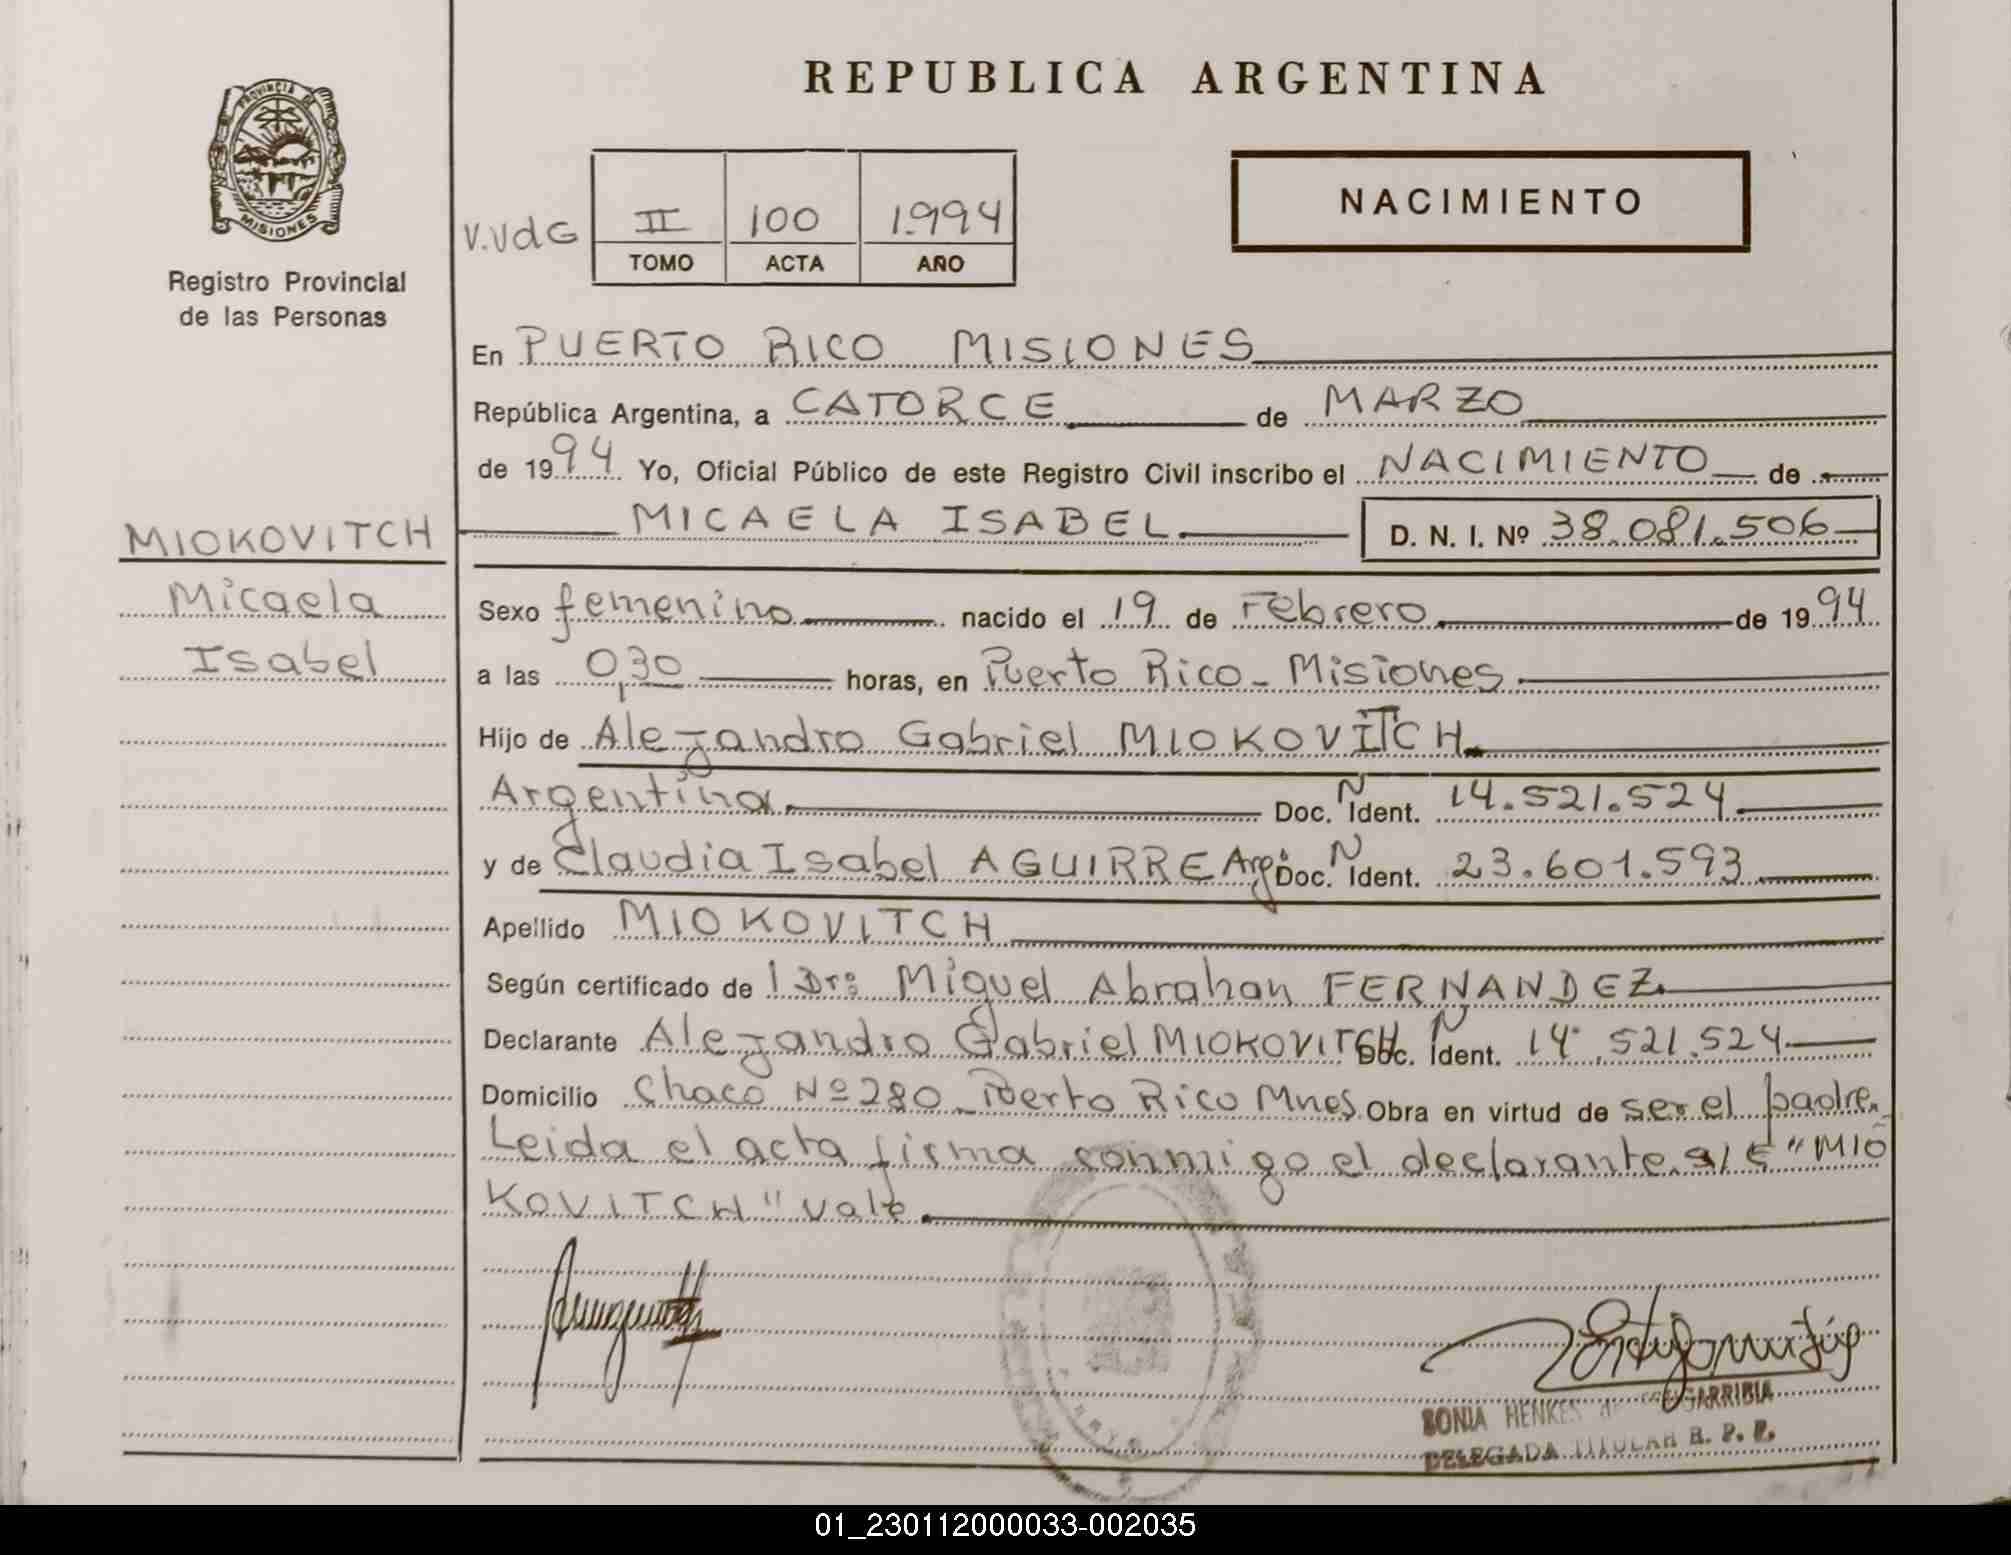 REPUBLICA ARGENTINA
PROVINCIA DE
MISIONES
Registro Provincial
de las Personas
V.VdG
II 100 1.994
TOMO ACTA AÑO
NACIMIENTO
En PUERTO RICO MISIONES
República Argentina, a CATORCE de MARZO
de 1994 Yo, Oficial Público de este Registro Civil inscribo el NACIMIENTO de
MICAELA ISABEL D. N. I. Nº 38.081.506
MIOKOVITCH
Micaela
Isabel
Sexo femenino nacido el 19 de Febrero de 1994
a las 0,30 horas, en Puerto Rico - Misiones
Hijo de Alejandro Gabriel MIOKOVITCH
Argentina Doc. N Ident. 14.521.524
y de Claudia Isabel AGUIRRE Arg. Doc. N Ident. 23.601.593
Apellido MIOKOVITCH
Según certificado de l Dr: Miguel Abrahan FERNANDEZ
Declarante Alejandro Gabriel MIOKOVITCH Doc. N Ident. 14.521.524
Domicilio Chaco Nº 280 - Puerto Rico Mnes Obra en virtud de ser el padre.
Leida el acta firma conmigo el declarante. s/e "MIO
KOVITCH" vale.
SONIA HENKES de GARRIBIA
DELEGADA TITULAR R. P. P.
01_230112000033-002035